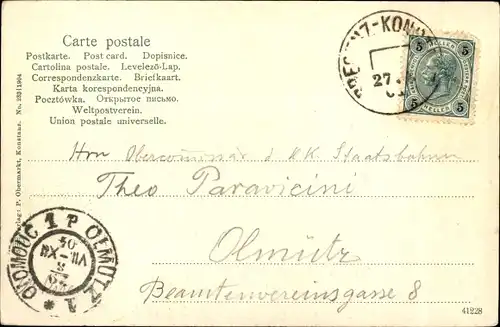 Carte postale
Postkarte. Post card. Dopisnice.
Cartolina postale. Levelező-Lap.
Correspondenzkarte. Briefkaart.
Karta korespondencyjna.
Pocztówka. Открытое письмо.
Weltpostverein.
Union postale universelle.
Verlag: P. Obermarkt, Konstanz. No. 232|1904
BREGENZ-KON
27
5 HELLER 5
5 HELLER 5
Hrn Obercommissär d KK Staatsbahnen
Theo Paravicini
Olmütz
Beamtenvereinsgasse 8
OLOMOUC 1 P OLMÜTZ 1
VII-XII
41228